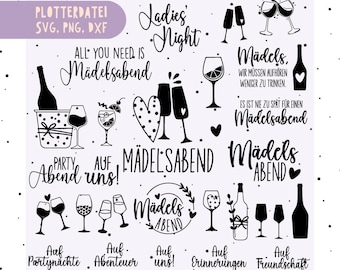 PLOTTERDATEI
SVG, PNG, DXF
Ladies'
Night
ALL YOU NEED IS
Mädelsabend
Mädels,
WIR MÜSSEN AUFHÖREN
WENIGER ZU TRINKEN.
ES IST NIE ZU SPÄT FÜR EINEN
Mädelsabend
PARTY
Abend
AUF
uns!
MÄDELSABEND
Mädels
ABEND
Mädels
ABEND
Auf
Partynächte
Auf
Abenteuer
Auf
uns!
Auf
Erinnerungen
Auf
Freundschaft